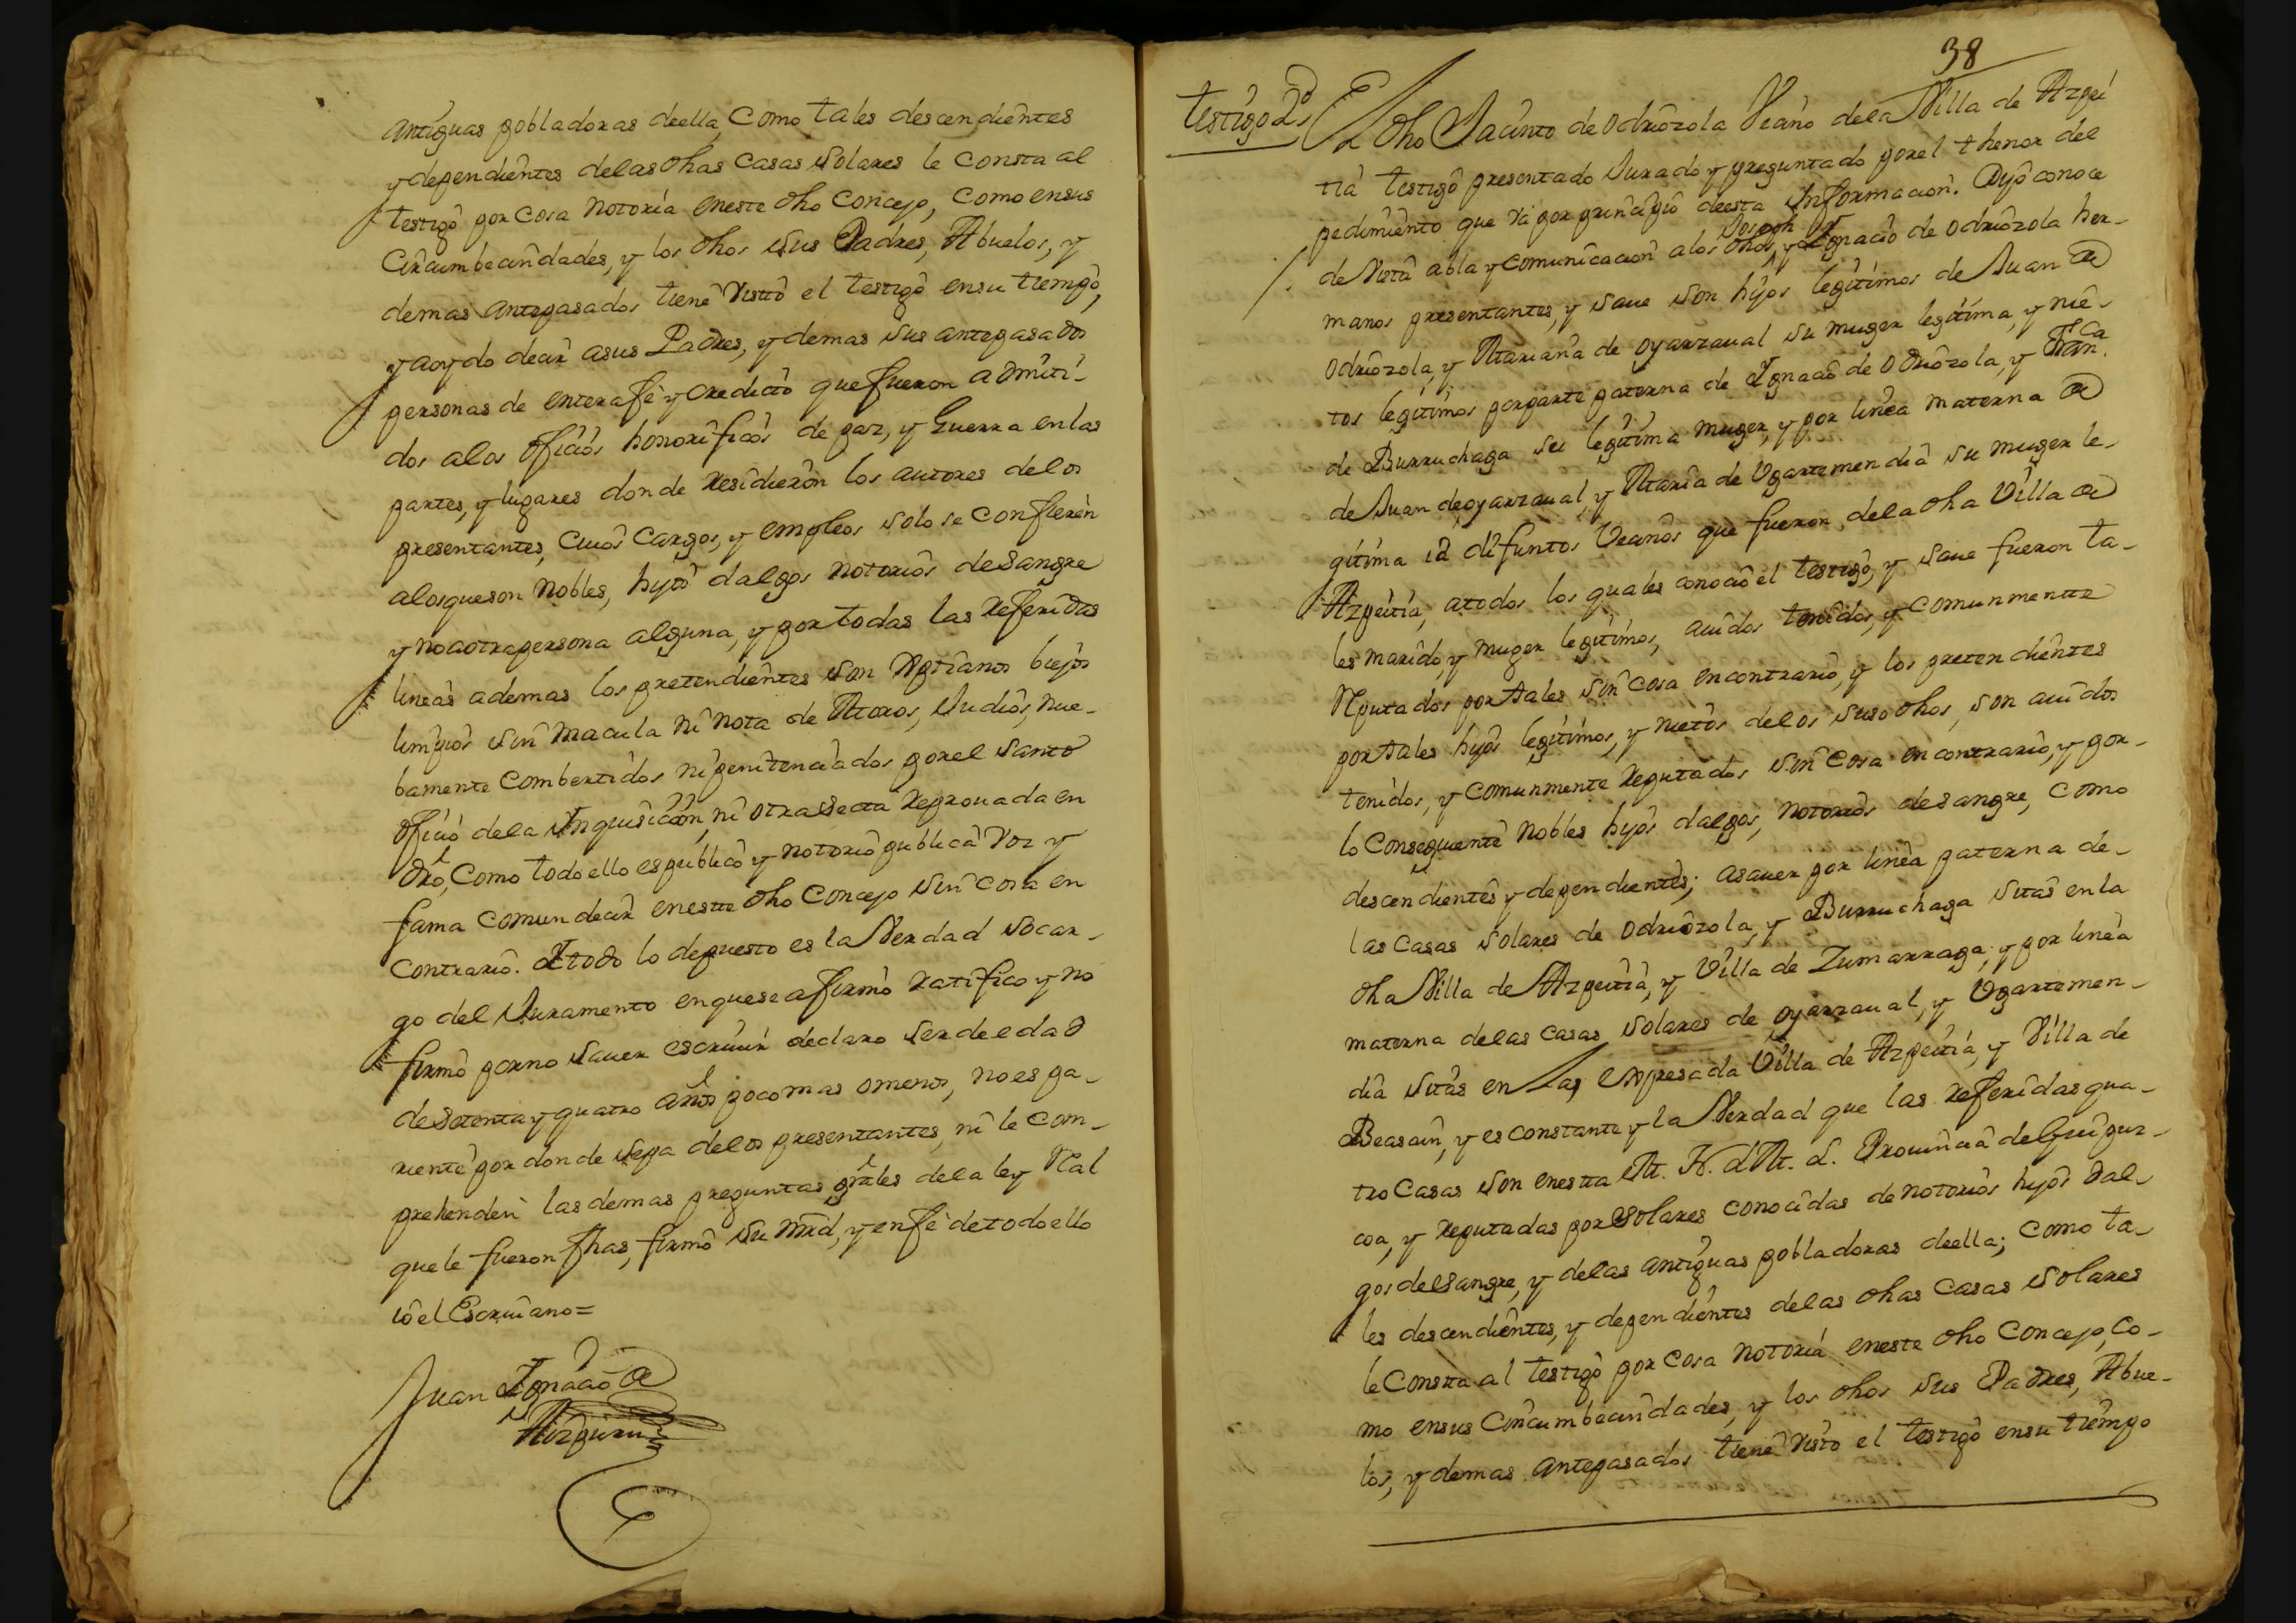 antiguas pobladoras deella, Como tales descendientes
y dependientes delas dhas Casas Solares le Consta al
testigo por Cosa notoria eneste dho Concejo, Como ensus
Circumbecindades, y los dhos sus Padres, Abuelos, y
demas antepasados tiene Visto el testigo ensu tiempo,
y aoydo decir asus Padres, y demas sus antepasados
personas de enterafe y Credicto que fueron admiti-
dos alos oficios honorificos de paz, y Guerra enlas
partes, y lugares donde Residieron los autores delos
presentantes, Cuios Cargos, y empleos solo se Confieren
alosqueson nobles, hijos dalgos notorios desangre
y noaotrapersona alguna, y por todas las Referidas
lineas ademas los pretendientes son Xptianos biejos
limpios sin macula ni nota de Moros, Judios, nue-
bamente Combertidos ni penitenciados porel Santo
oficio dela Inquisicion, ni otra Secta Reprouada en
dro, Como todo ello espublico y notorio publica Voz y
fama Comun decir eneste dho Concejo sin Cosa en
Contrario. Itodo lo depuesto es la Verdad socar-
go del Juramento enquese afirmo ratifico y no
firmo porno sauer escriuir declaro ser deedad
desetenta y quatro años pocomas omenos, no es pa-
riente por donde sepa delos presentantes, ni le Com-
prehenden las demas preguntas grâles dela ley Real
que le fueron fhas, firmo su mrd, y enfe detodo ello
io el Escriuano =
Juan Ignacio de
Aizpuru
38
testigo 2º
El dho Jacinto de odriozola Vecino dela Villa de Azpei
tia testigo presentado Jurado y preguntado porel thenor del
pedimiento que Va por principio deesta Informacion. Dijo conoce
de Vista abla y comunicacion alos dhos Joseph, y Ignacio de odriozola her-
manos presentantes, y saue son hijos legitimos de Juan de
odriozola, y Mariana de oyarzaual su muger legitima, y nie-
tos legitimos porparte paterna de Ignacio de odriozola, y Franca
de Burruchaga su legitima muger, y por linea materna de
de Juan de oyarzaual, y Maria de Ugartemendia su muger le-
gitima ia difuntos Vecinos que fueron dela dha Villa de
Azpeitia, atodos los quales conocio el testigo, y saue fueron ta-
les marido, y muger legitimos, auidos tenidos, y Comunmentte
Reputados por tales sin Cosa en contrario, y los pretendientes
por tales hijos legitimos, y nietos delos suso dhos, son auidos
tenidos, y Comunmente Reputados sin Cosa en contrario, y por-
lo Conseguiente nobles hijos dalgos, notorios desangre, Como
descendientes y dependientes; asauer por linea paterna de-
las Casas solares de odriozola, y Burruchaga sitas en la
dha Villa de Azpeitia, y Villa de Zumarraga; y por linea
materna delas Casas solares de oyarzaual, y Ugartemen-
dia sitas en Las expresada Villa de Azpeitia, y Villa de
Beasain, y es constante y la Verdad que las Referidas qua-
tro Casas son enesta M. N. i M. L. Prouincia de Guipuz-
coa, y Reputadas por Solares Conocidas de notorios hijos dal-
gos desangre, y delas antiguas pobladoras deella; Como ta-
les descendientes, y dependientes delas dhas Casas solares
le Consta al testigo por Cosa notoria eneste dho Concejo, Co-
mo ensus Circumbecindades, y los dhos sus Padres, Abue-
los, y demas antepasados tiene Visto el testigo ensu tiempo